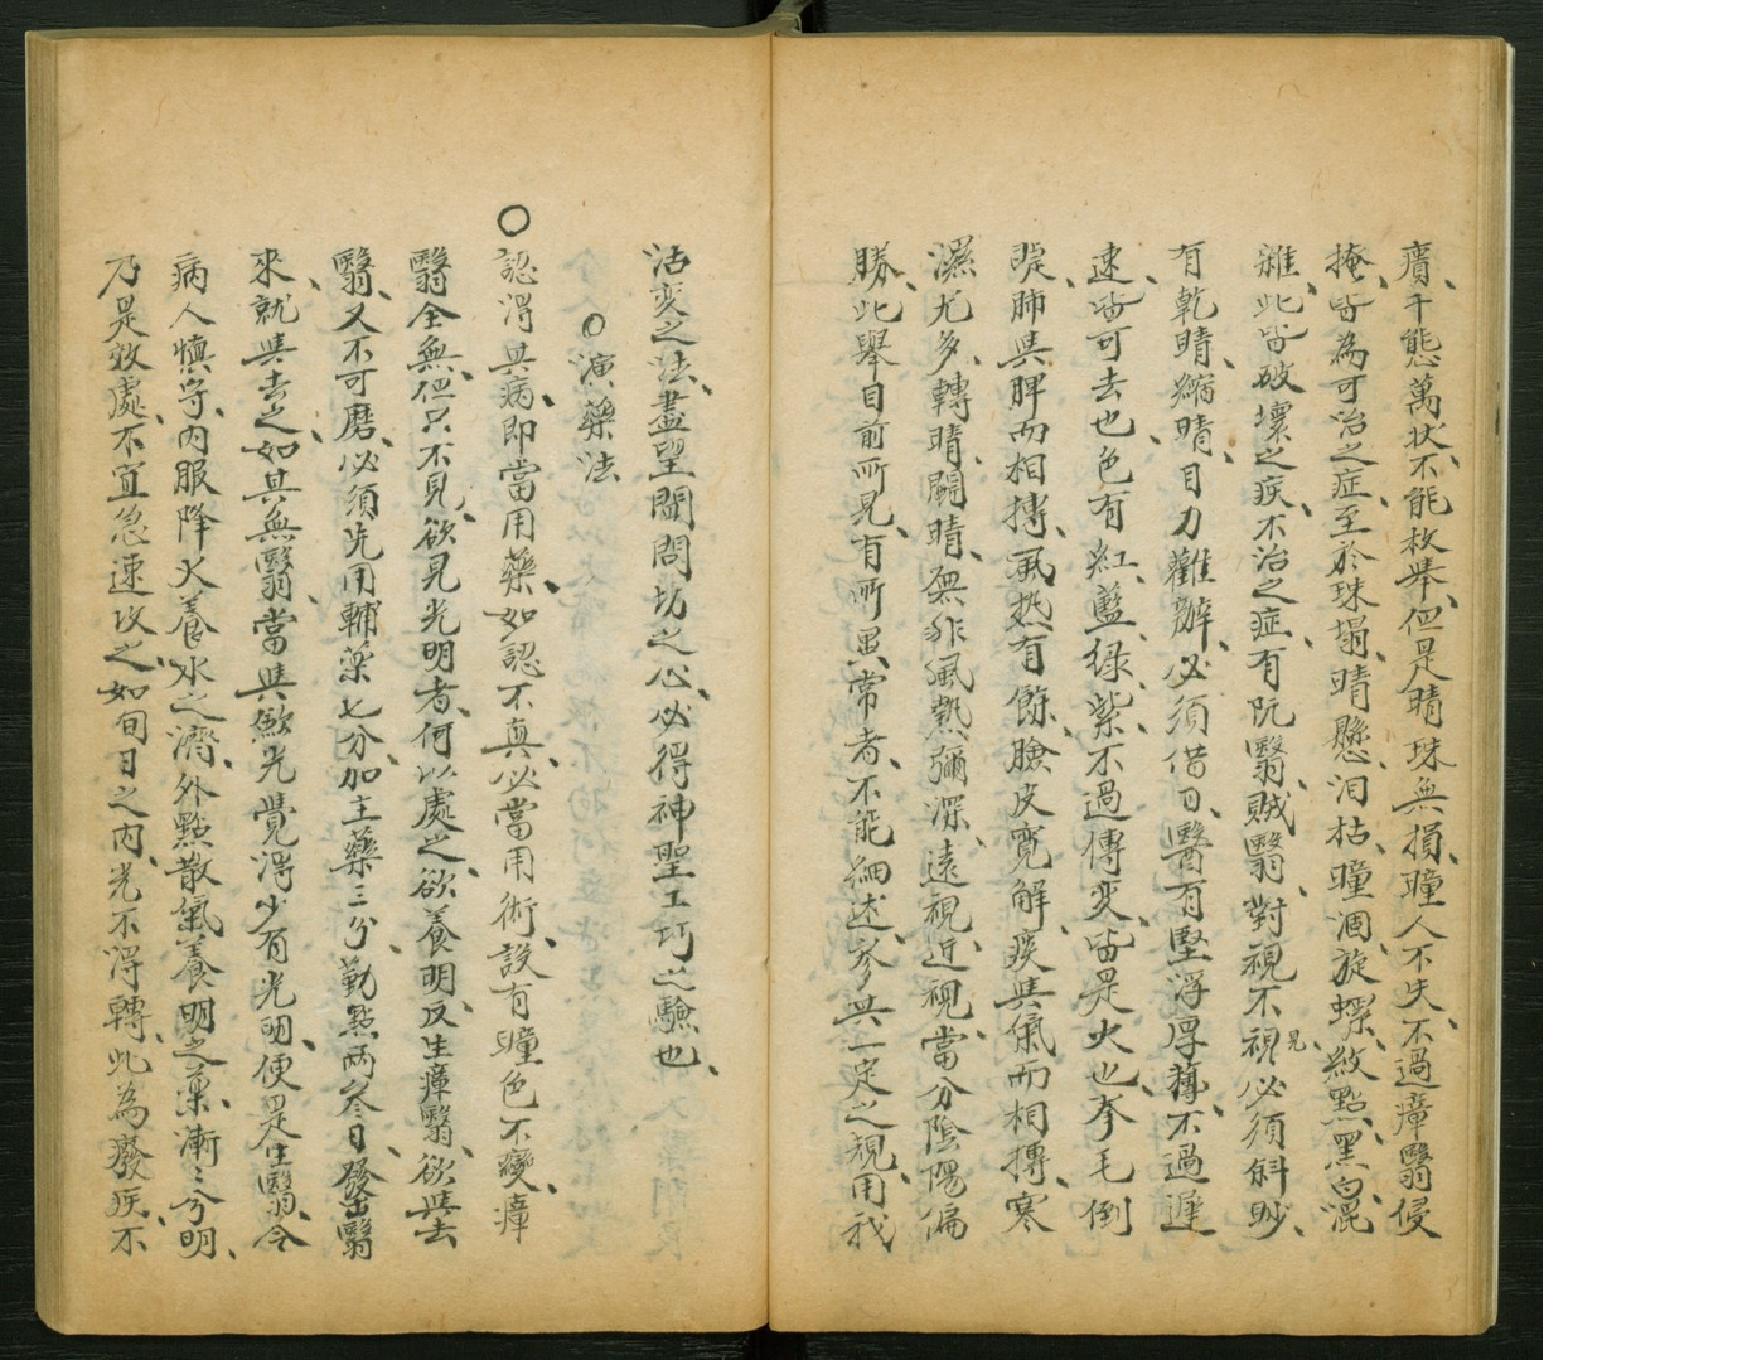 癀千態萬状不能枚挙但是睛珠無損瞳人不失不過瘴翳侵
掩皆為可治之症至於珠塌睛懸泪枯瞳涸旋螺紋點黑白混
雜此皆破壞之疾不治之症有阮翳賊翳對視不視見必須斜眇
有乾睛縮睛目力難辦必須借日醫有堅浮厚薄不過遲
速皆可去也色有紅藍緑紫不過傳变皆是火也拳毛倒
睫肺與脾而相摶風热有餘臉皮寛解疾其氣而相摶寒
濕尤多轉睛鬭睛無非風熱彌深遠視近視當分陰陽偏
勝此舉目前所見有所異常者不能細述參其一定之規用我
活变之法盡望聞問切之心必得神聖工巧之驗也
○演藥法
○認得其病即當用藥如認不真必當用術設有瞳色不變瘴
翳全無但只不見欲見光明者何以處之欲養明反生瘴翳欲與去
翳又不可磨必須先用輔薬七分加主藥三分勤點兩叁日發出翳
來就與去之如其無翳當與歛光覺得少有光明便是生翳令
病人慎守内服降火養水之濟外點散氣養明之薬漸〻分明
乃是效處不宜急速攻之如旬日之内光不得轉此為廢疾不